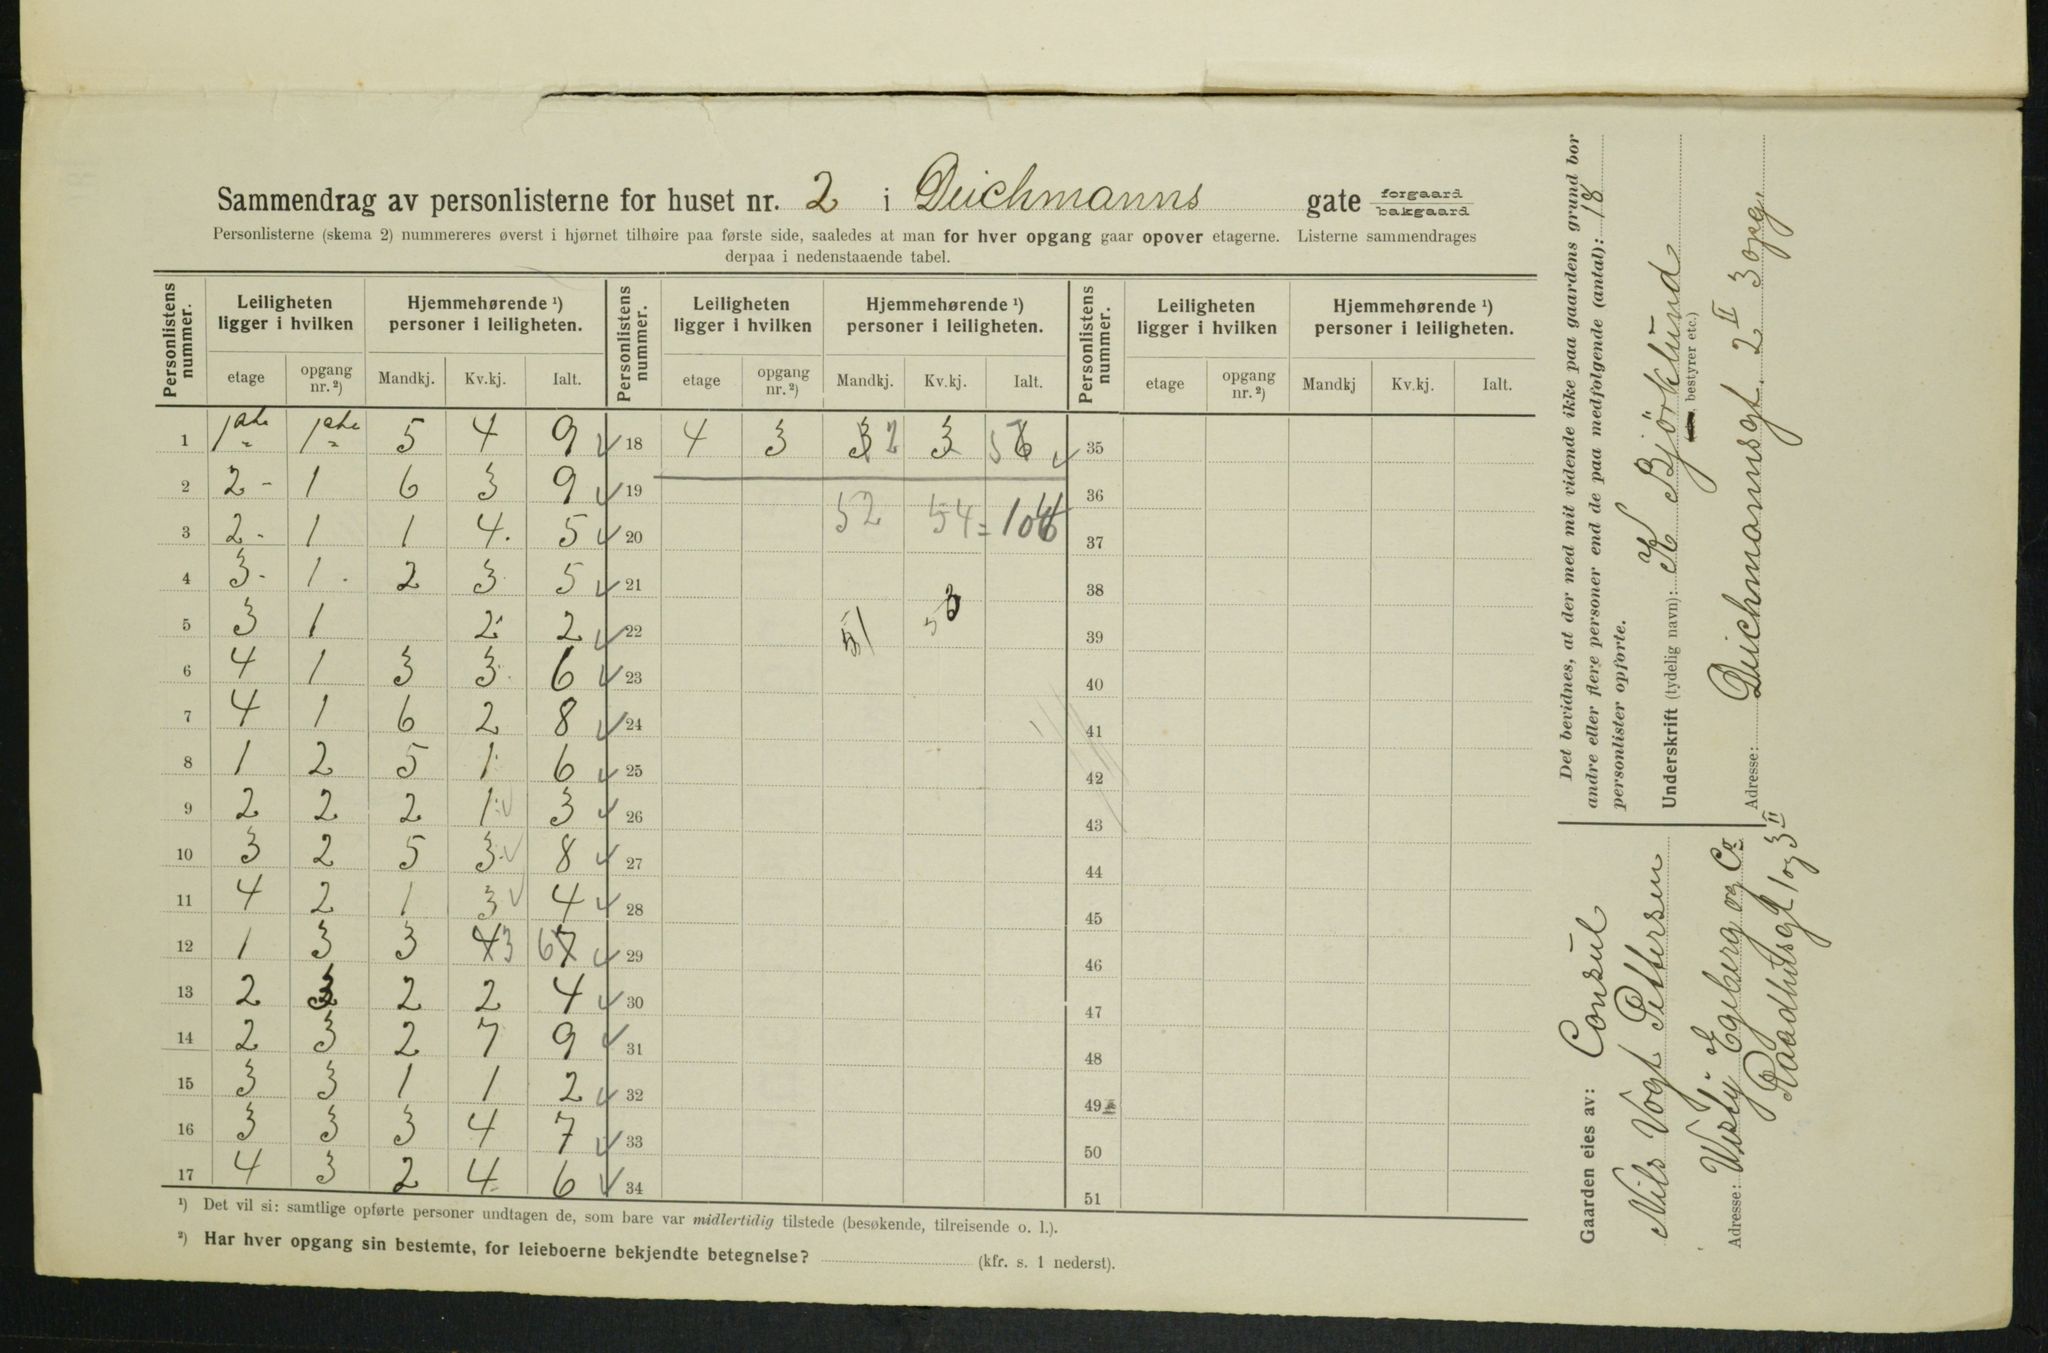 Sammendrag av personlisterne for huset nr. 2 i Deichmanns gate forgaard bakgaard
Personlisterne (skema 2) nummereres øverst i hjørnet tilhøire paa første side, saaledes at man for hver opgang gaar opover etagerne. Listerne sammendrages
derpaa i nedenstaaende tabel.
Personlistens nummer. Leiligheten ligger i hvilken Hjemmehørende ¹) personer i leiligheten. Personlistens nummer. Leiligheten ligger i hvilken Hjemmehørende ¹) personer i leiligheten. Personlistens nummer. Leiligheten ligger i hvilken Hjemmehørende ¹) personer i leiligheten.
etage opgang nr. ²) Mandkj. Kv.kj. Ialt. etage opgang nr. ²) Mandkj. Kv.kj. Ialt. etage opgang nr. ²) Mandkj Kv.kj. Ialt.
1 1ste 1ste 5 4 9 18 4 3 3 2 3 5 6 35
2 2 - 1 6 3 9 19 36
3 2 - 1 1 4. 5 20 52 54 = 106 37
4 3 - 1. 2 3. 5 21 38
5 3 1 2 2 22 51 53 39
6 4 1 3 3. 6 23 40
7 4 1 6 2 8 24 41
8 1 2 5 1 6 25 42
9 2 2 2 1 3 26 43
10 3 2 5 3 8 27 44
11 4 2 1 3 4 28 45
12 1 3 3 4 3 6 7 29 46
13 2 3 2 2 4 30 47
14 2 3 2 7 9 31 48
15 3 3 1 1 2 32 49
16 3 3 3 4 7 33 50
17 4 3 2 4 6 34 51
¹) Det vil si: samtlige opførte personer undtagen de, som bare var midlertidig tilstede (besøkende, tilreisende o. l.).
²) Har hver opgang sin bestemte, for leieboerne bekjendte betegnelse? (kfr. s. 1 nederst).
Det bevidnes, at der med mit vidende ikke paa gaardens grund bor
andre eller flere personer end de paa medfølgende (antal): 18
personlister opførte.
Underskrift (tydelig navn): K Bjørklund
, bestyrer etc.)
Adresse: Deichmannsgt. 2 II 3 opg
Gaarden eies av: Consul
Nils Vogt Pettersen
Adresse: Egeberg og Co
Raadhusgt 1 og 3 II